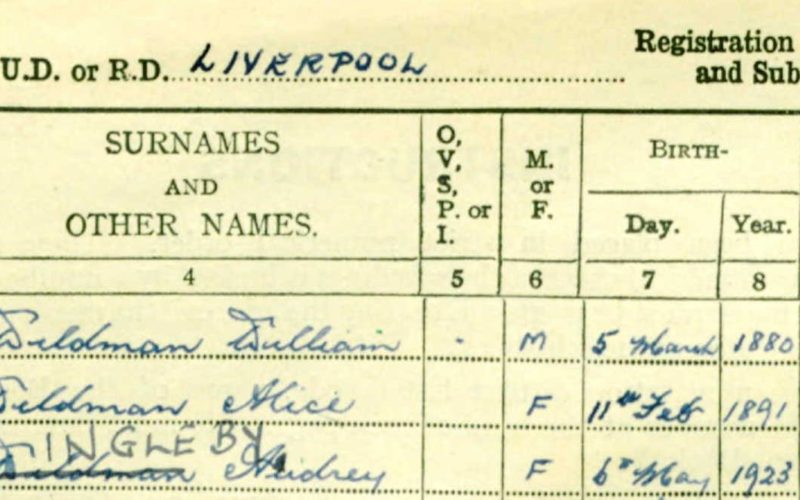 U.D. or R.D. LIVERPOOL Registration
and Sub
SURNAMES
AND
OTHER NAMES.
O,
V,
S,
P. or
I.
M.
or
F.
BIRTH-
Day. Year.
4 5 6 7 8
Wildman William - M 5 March 1880
Wildman Alice F 11th Feb 1891
INGLEBY
Wildman Audrey F 6th May 1923